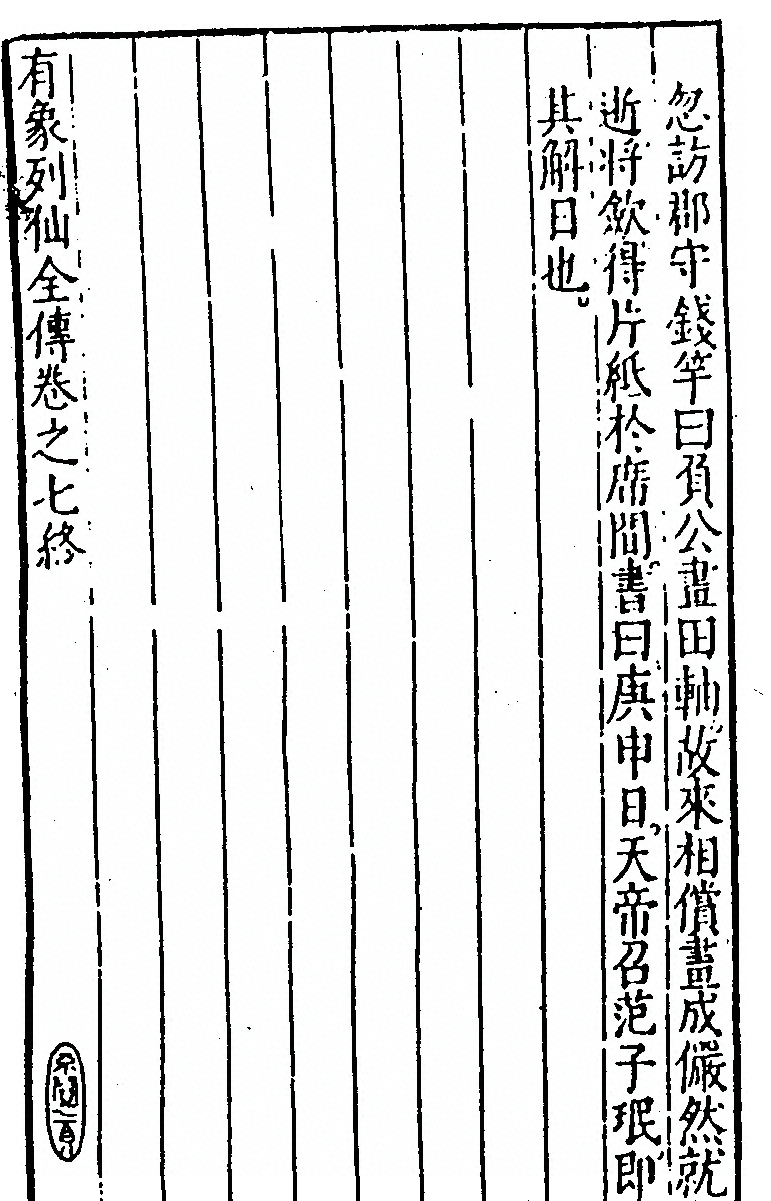 忽訪郡守錢竿曰負公畫田軸故來相償畫成儼然就
逝將斂得片紙於席間書曰庚申日天帝召范子珉即
其解日也
有象列仙全傳卷之七終